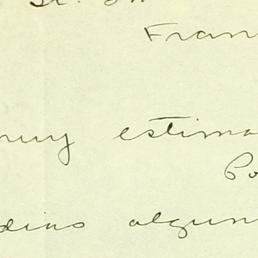 Sr. Dn
Fran
muy estima
Po
dias algun